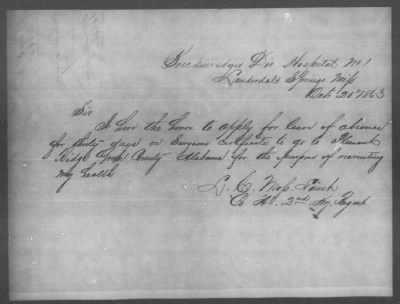 Breckinridges Div Hospital No 1
Lauderdale Springs Miss
Oct 20th 1863
Sir
I have the honor to apply for leave of absence
for thirty days on Surgeons Certificate to go to Pleasant
Ridge Green County Alabama for the purpose of recruiting
my health
Co H. 2nd Ky Regmt